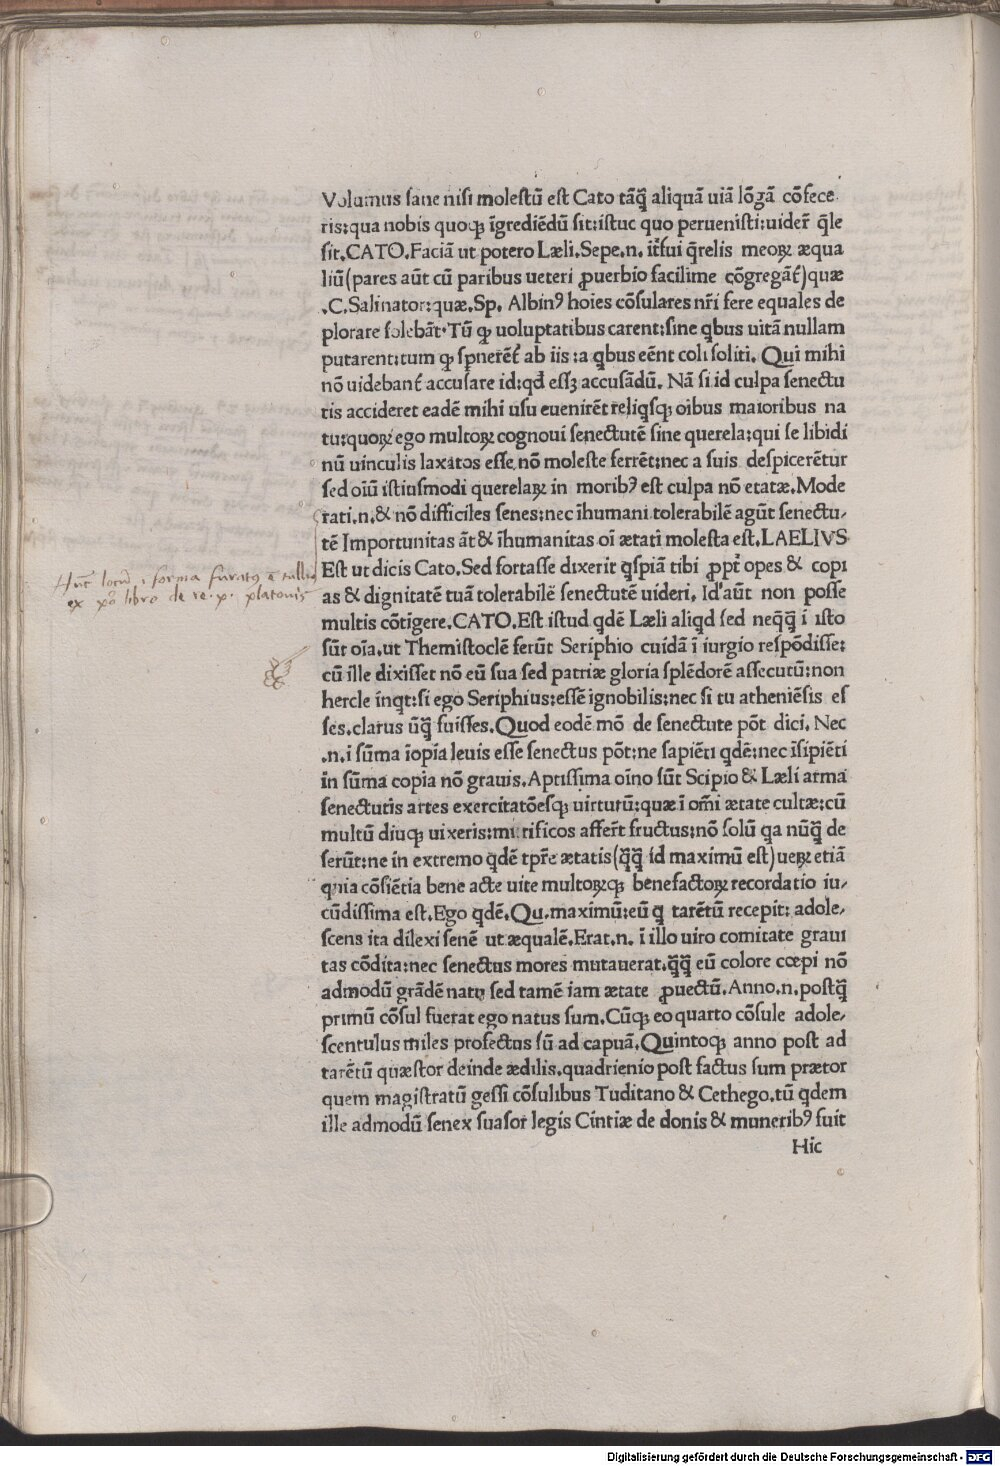 Volumus sane nisi molestū est Cato tāꝙ̃ aliquā uiā lōgā cōfece
ris:qua nobis quoqꝫ īgrediēdū sit:istuc quo peruenisti:uider̃ q̃le
sit.CATO.Faciā ut potero Læli.Sepe.n. īt̃fui q̃relis meoꝝ æqua
liū(pares aūt cū paribus ueteri ꝓuerbio facilime cōgregãt̃)quæ
.C.Salinator:quæ.Sp. Albinꝰ hoies cōsulares nr̃i fere equales de
plorare solebãt.Tū ꝙ uoluptatibus carent:sine qbus uitā nullam
putarent:tum ꝙ sꝑnerēt̃ ab iis:a qbus eēnt coli soliti. Qui mihi
nō uidebant̃ accusare id:qd̃ essꝫ accusādū. Nā si id culpa senectu
tis accideret eadē mihi usu euenirēt reliqsqꝫ oibus maioribus na
tu:quoꝝ ego multoꝝ cognoui senectutē sine querela:qui se libidi
nū uinculis laxatos esse nō moleste ferrēt:nec a suis despicerētur
sed oiū istiusmodi querelaꝝ in moribꝰ est culpa nō etatæ.Mode
rati.n.& nō difficiles senes:nec īhumani tolerabilē agūt senectu-
tē Importunitas āt & īhumanitas oī ætati molesta est.LAELIVS
Est ut dicis Cato.Sed fortasse dixerit qspiā tibi ꝓpt̃ opes & copi
as & dignitatē tuā tolerabilē senectutē uideri. Id aūt non posse
multis cōtīgere.CATO.Est istud qdē Læli aliqd sed neqꝙ̃ ī isto
sūt oīa.ut Themistoclē ferūt Seriphio cuidā ī iurgio respōdisse:
cū ille dixisset nō eū sua sed patriæ gloria splēdorē assecutū:non
hercle inqt:si ego Seriphius:essē ignobilis:nec si tu atheniēsis es
ses.clarus ūꝙ̃ fuisses.Quod eodē mō de senectute pōt dici. Nec
.n.i sūma īopia leuis esse senectus pōt:ne sapiēti qdē:nec īsipiēti
in sūma copia nō grauis.Aptissima oīno sūt Scipio & Læli arma
senectutis artes exercitatōesqꝫ uirtutū:quæ ī om̄i ætate cultæ:cū
multū diuqꝫ uixeris:mirificos affer̃t fructus:nō solū qa nūꝙ̃ de
serūt:ne in extremo qdē tpr̃e ætatis(ꝙ̃ꝙ̃ id maximū est)ueꝝ etiā
quia cōsiētia bene acte uite multoꝝqꝫ benefactoꝝ recordatio iu-
cūdissima est.Ego qdē.Qu.maximū:eū q tarētū recepit: adole-
scens ita dilexi senē ut æqualē.Erat.n. ī illo uiro comitate graui
tas cōdita:nec senectus mores mutauerat.ꝙ̃ꝙ̃ eū colore cœpi nō
admodū grādē natu sed tamē iam ætate ꝓuectū.Anno.n.postꝙ̃
primū cōsul fuerat ego natus sum.Cūqꝫ eo quarto cōsule adole-
scentulus miles profectus sū ad capuā.Quintoqꝫ anno post ad
tarētū quæstor deinde ædilis.quadrienio post factus sum prætor
quem magistratū gessi cōsulibus Tuditano & Cethego.tū qdem
ille admodū senex suasor legis Cintiæ de donis & muneribꝰ fuit
Hic
Hūc locū ī forma furatꝰ ē tulliꝰ
ex pº libro de re. p. platonis
Digitalisierung gefördert durch die Deutsche Forschungsgemeinschaft - DFG